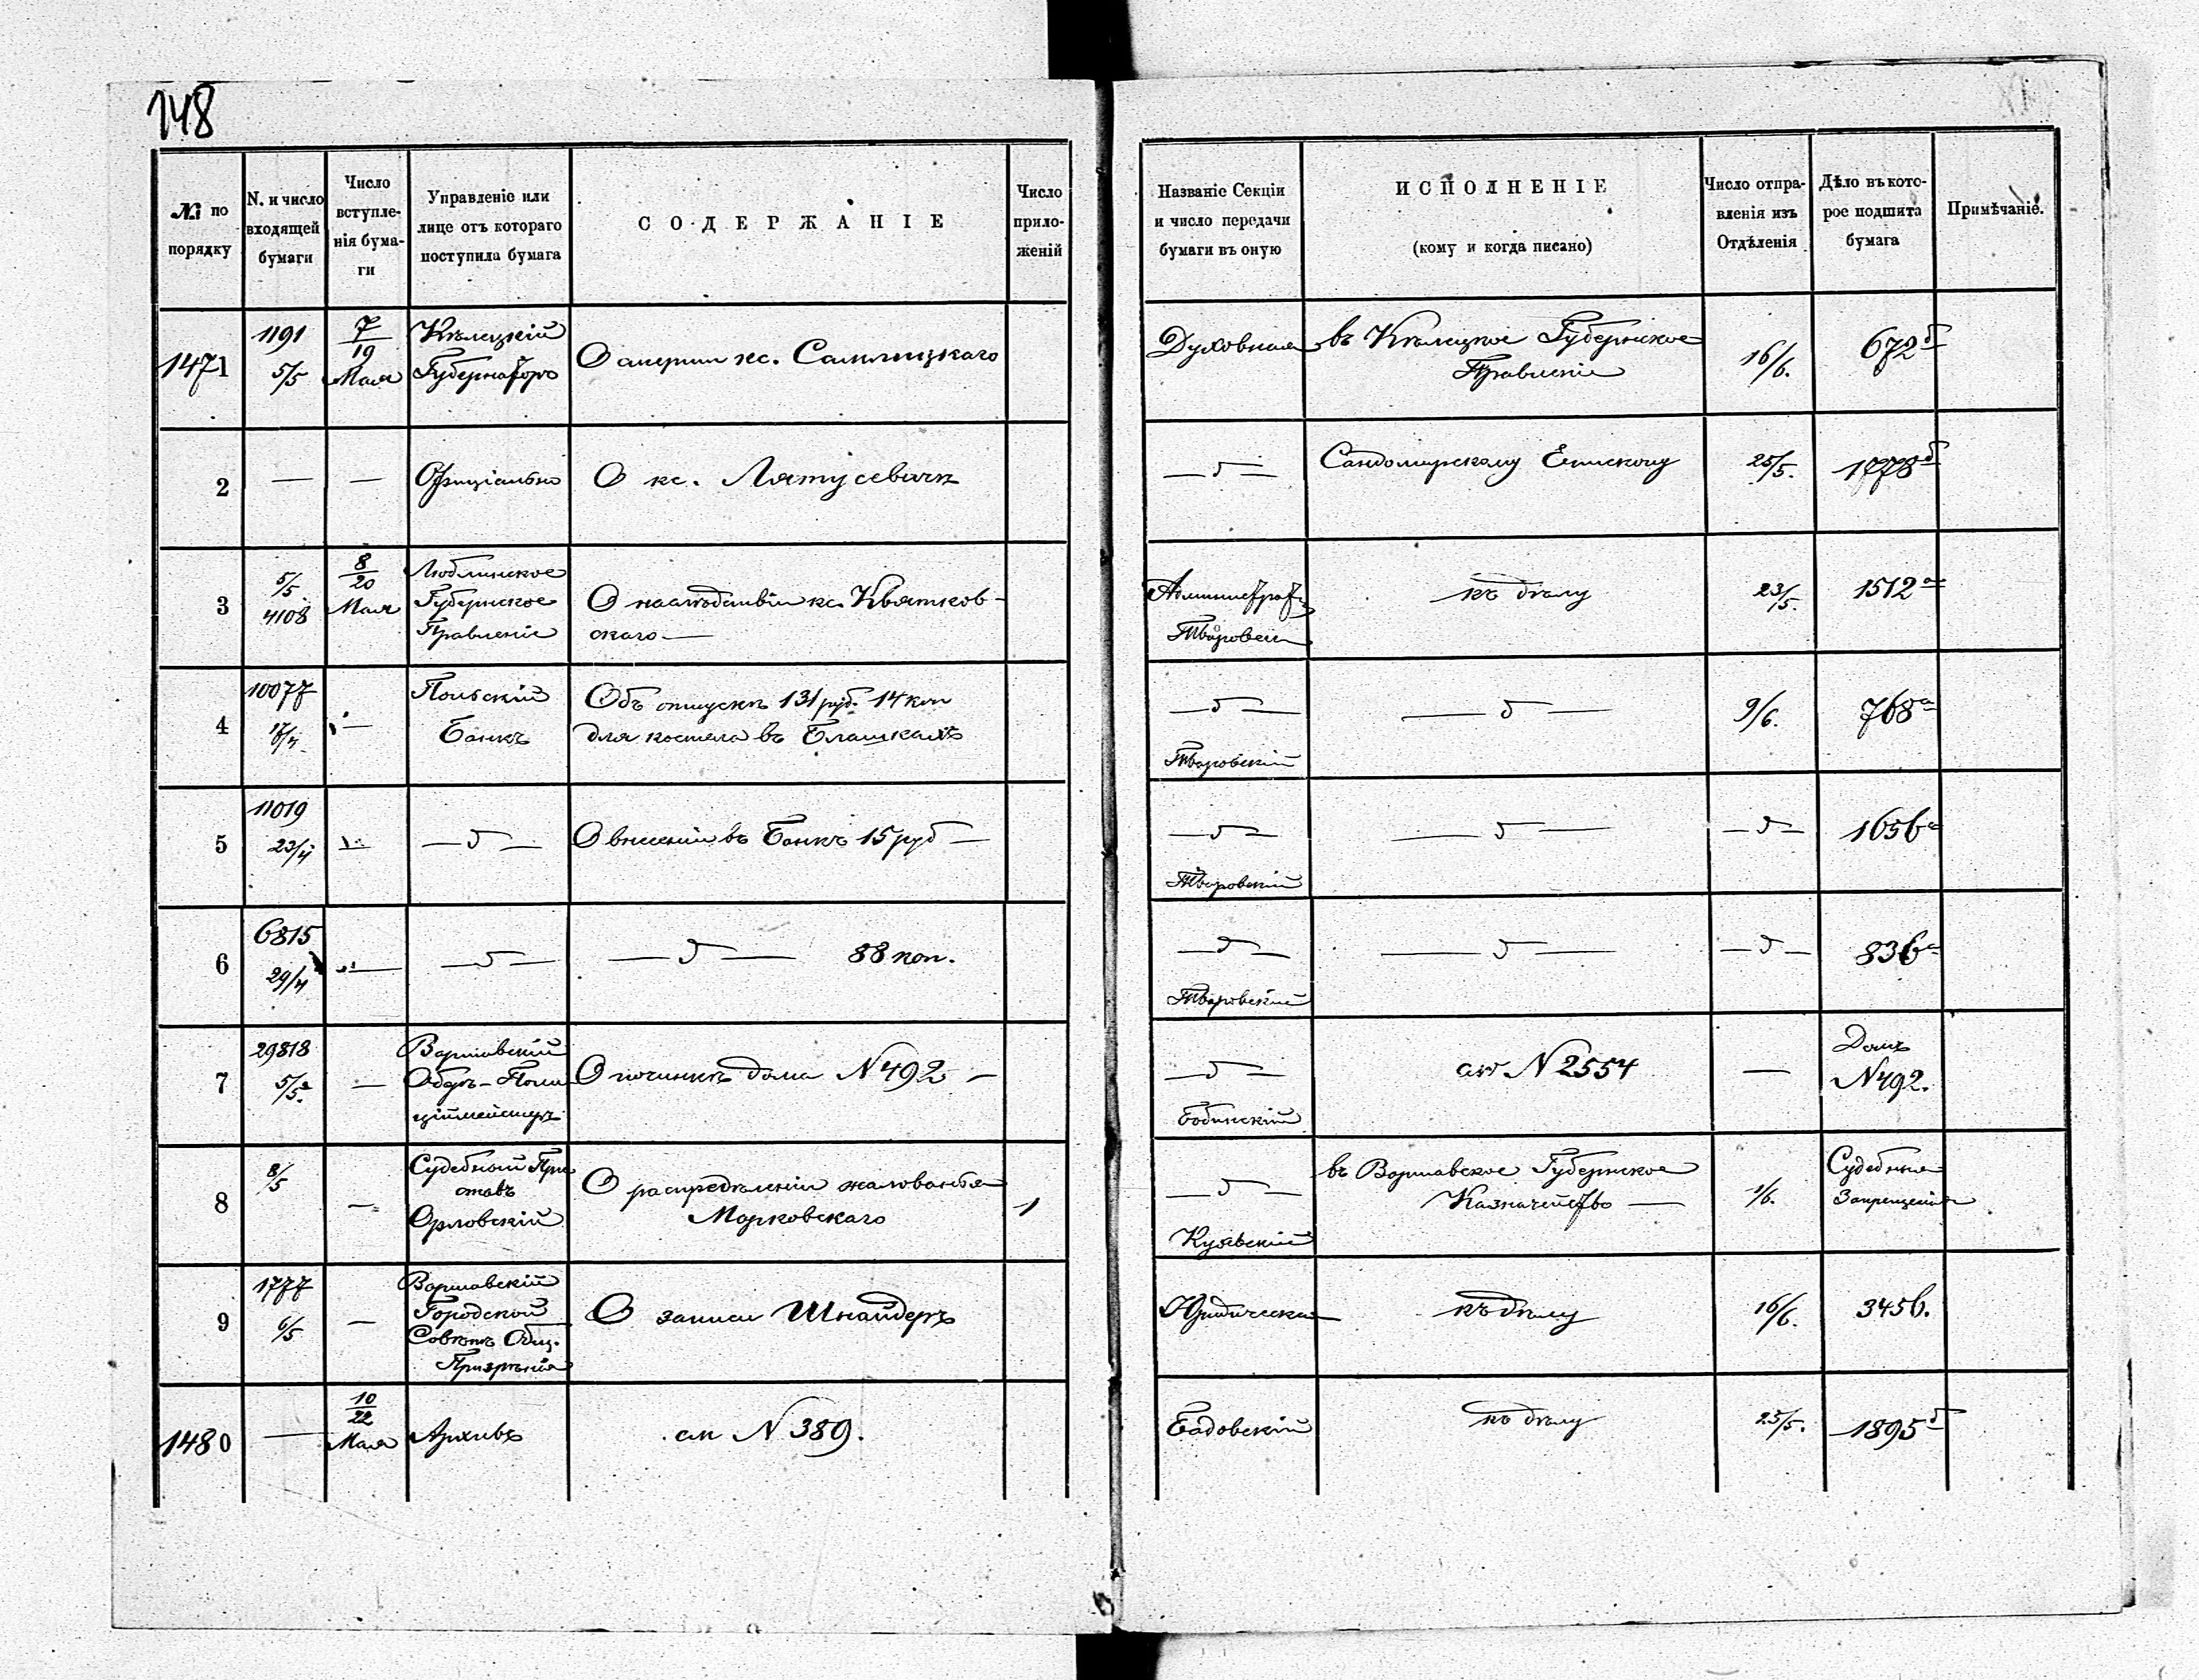 148
№ по порядку
N. и число входящей бумаги
Число вступле-
нія бума-
ги
Управленіе или
лице отъ котораго
поступила бумага
СОДЕРЖАНІЕ
Число
прило-
женій
Названіе Секціи
и число передачи
бумаги въ оную
ИСПОЛНЕНІЕ
(кому и когда писано)
Число отпра-
вленія изъ
Отдѣленія
Дѣло въ кото-
рое подшита
бумага
Примѣчаніе.
1471
1191
5/5
7/19
Мая
Кѣлецкій
Губернаторъ
О смерти кс.
Духовная
въ Кѣлецкое Губернское
Правленіе
16/6.
672 б
2
— —
Офиціально
О кс. Лятусевичѣ
— " —
Сандомирскому Епископу
25/5.
1778 б
3
5/5
4108
8/20
Мая
Люблинское
Губернское
Правленіе
О наслѣдствѣ кс. Квятков-
скаго —
Администрат.
къ дѣлу
23/5.
1512 а
4
10077
—
Польскій
Банкъ
Объ отпускѣ 131 руб. 14 коп
для костела въ Блашкахъ
— " —
Творовскій
— " —
9/6.
768 а
5
11019
23/4
— " —
О внесеніи въ Банкъ 15 руб —
— " —
Творовскій
— " —
— " —
1656 а
6
6815
29/4
—
— " —
— " — 88 коп.
— " —
Творовскій
— " —
— " —
836 а
7
29818
5/5
—
Варшавскій
Оберъ-Поли
ціймейстеръ
О починкѣ дома N 492 —
— " —
см N 2554
—
Домъ
N 492.
8
8/5
—
Судебный При
ставъ
Орловскій
О распредѣленіи жалованья
Марковскаго
1
— " —
въ Варшавское Губернское
Казначейство —
1/6.
Судебныя
Запрещенія
9
1777
6/5
—
Варшавскій
Городской
Совѣтъ Общ.
Призрѣнія
О записи Шнайдеръ
Юридическая
къ дѣлу
16/6.
3456.
1480
—
10/22
Мая
Архивъ
см N 389.
къ дѣлу
25/5.
1895 б